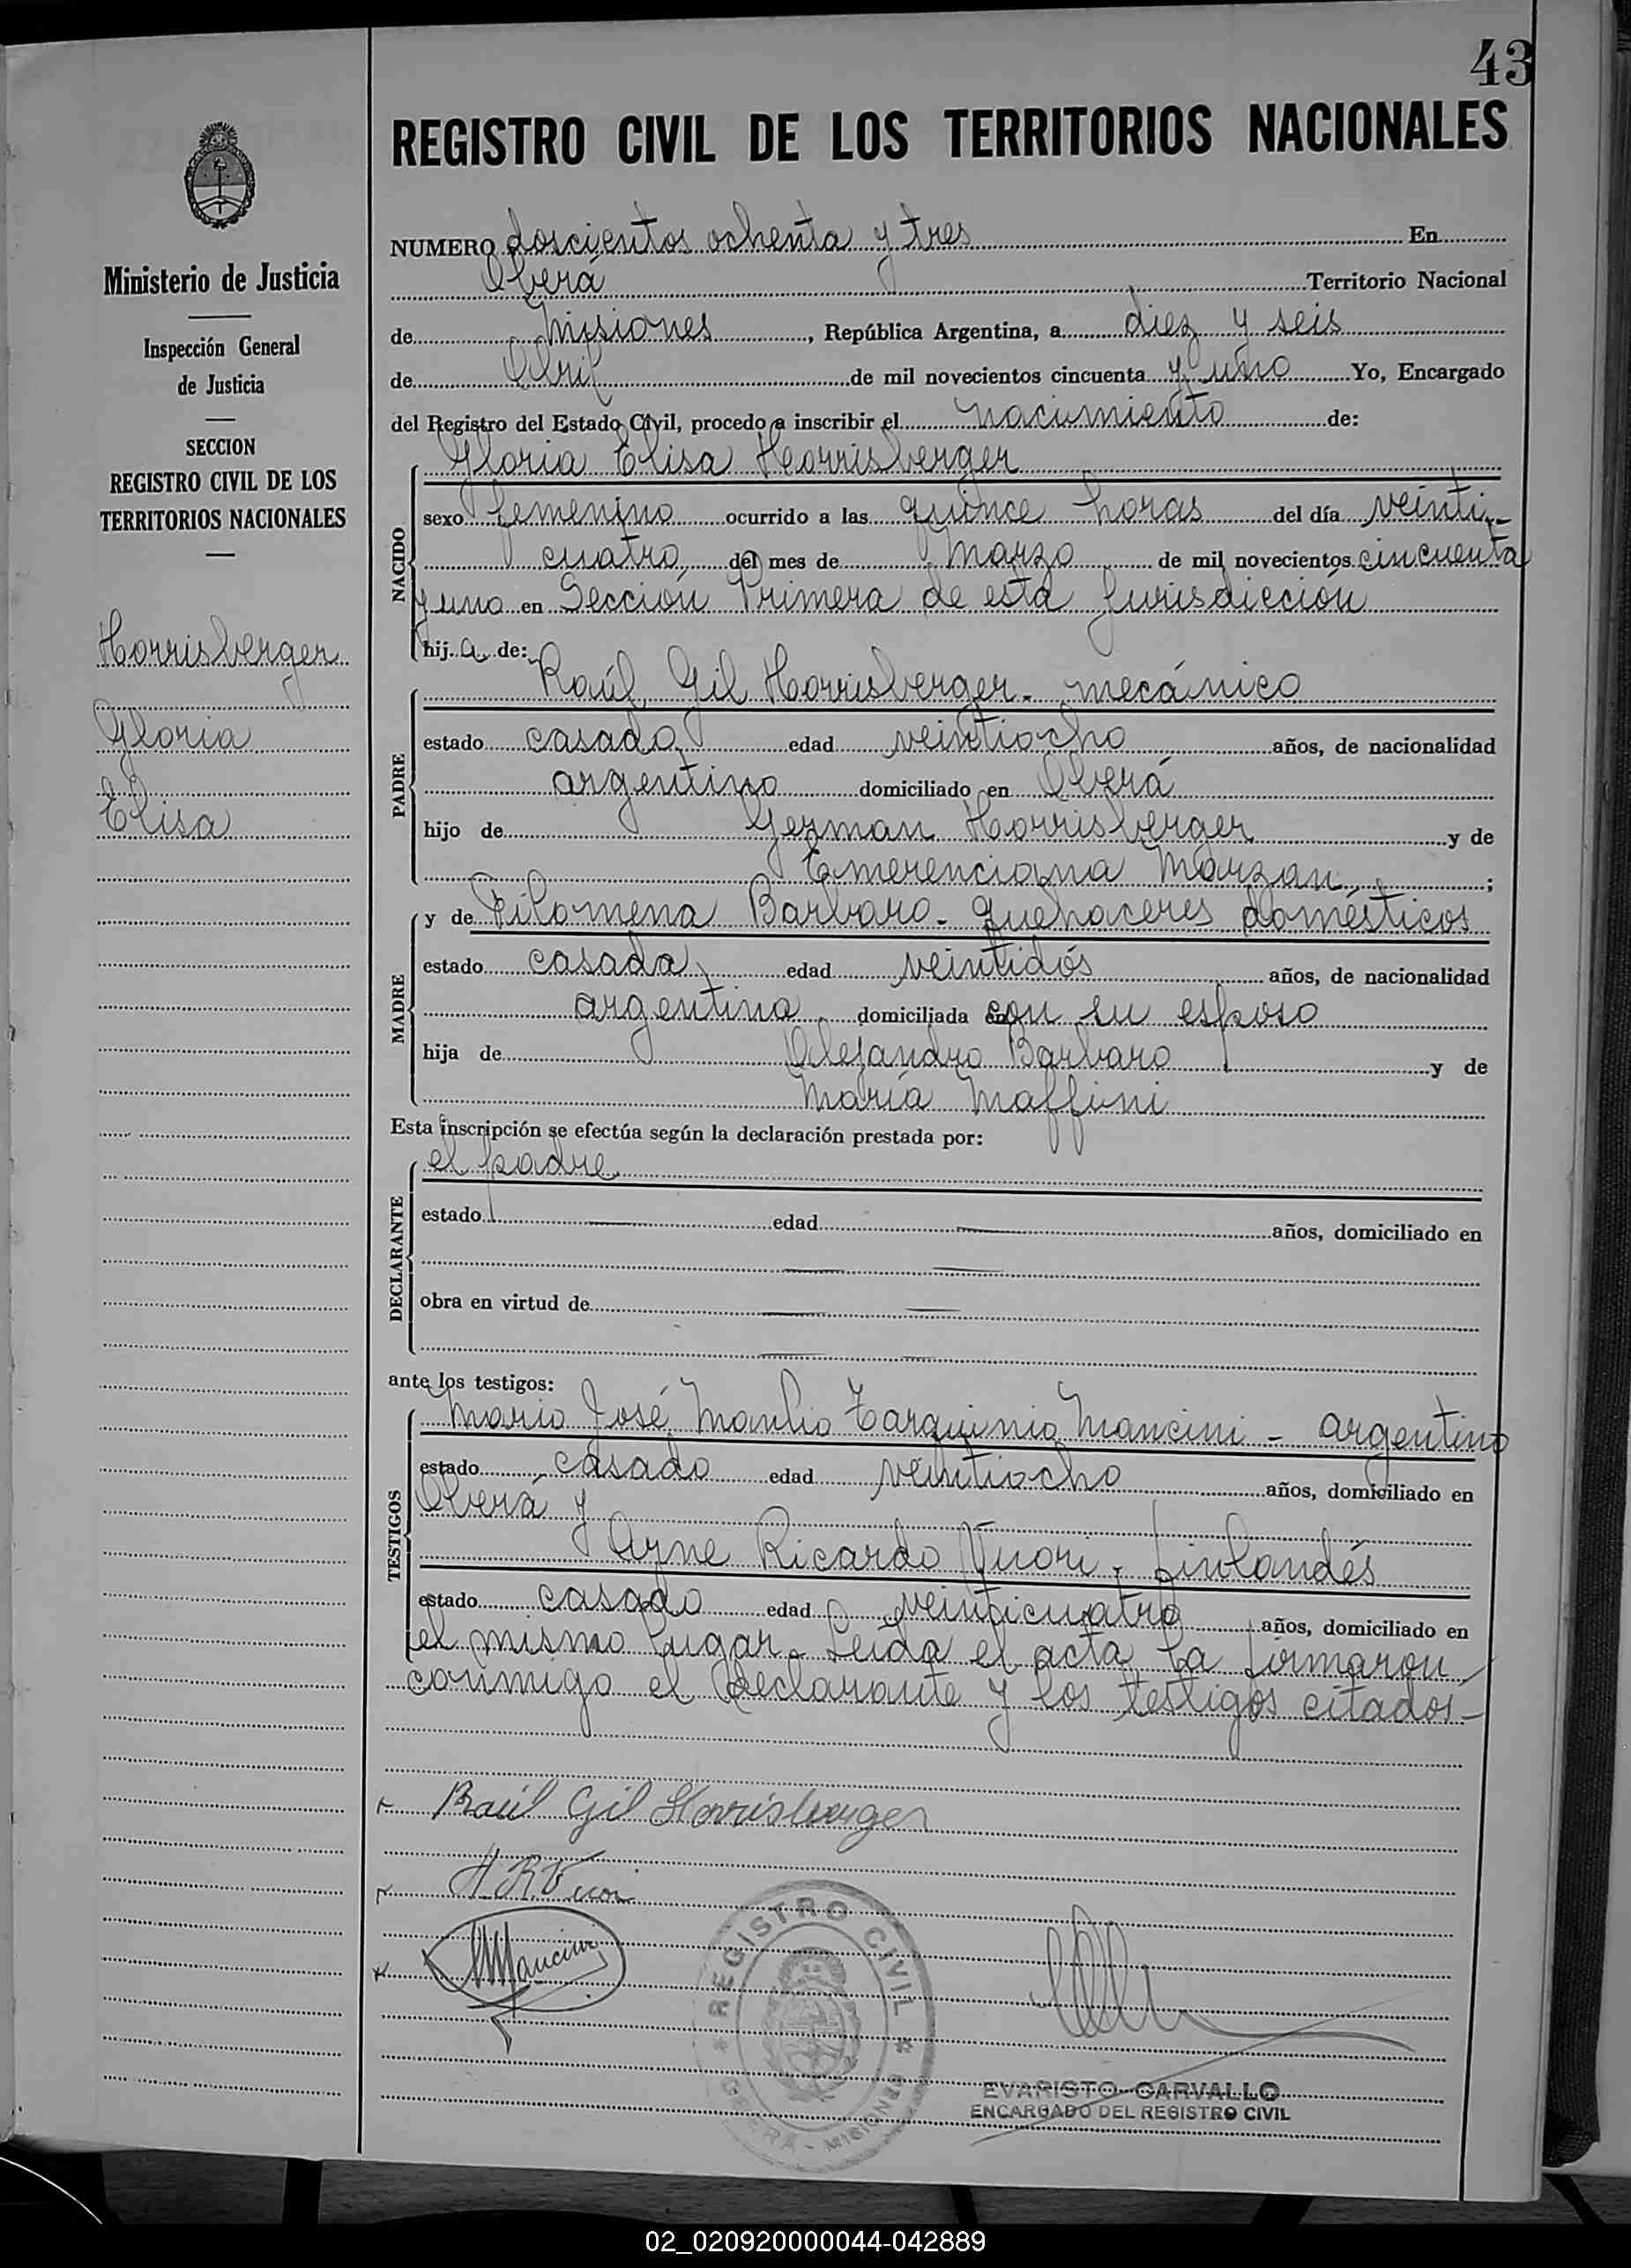 43
REGISTRO CIVIL DE LOS TERRITORIOS NACIONALES
Ministerio de Justicia
Inspección General
de Justicia
SECCION
REGISTRO CIVIL DE LOS
TERRITORIOS NACIONALES
Horrisberger
Gloria
Elisa
NUMERO doscientos ochenta y tres En
Oberá Territorio Nacional
de Misiones, República Argentina, a diez y seis
de Abril de mil novecientos cincuenta y uno Yo, Encargado
del Registro del Estado Civil, procedo a inscribir el nacimiento de:
Gloria Elisa Horrisberger
NACIDO
sexo femenino ocurrido a las quince horas del día veinti-
cuatro del mes de Marzo de mil novecientos cincuenta
y uno en Sección Primera de esta Jurisdicción
hija de:
Raúl Gil Horrisberger - mecánico
PADRE
estado casado edad veintiocho años, de nacionalidad
argentino domiciliado en Oberá
hijo de German Horrisberger y de
Emerenciana Marzan;
MADRE
y de Filomena Barbaro - quehaceres domésticos
estado casada edad veintidós años, de nacionalidad
argentina domiciliada en con su esposo
hija de Alejandro Barbaro y de
María Maffini
Esta inscripción se efectúa según la declaración prestada por:
el padre
DECLARANTE
estado edad años, domiciliado en
obra en virtud de
ante los testigos:
Mario José Manlio Tarquinio Mancini - argentino
TESTIGOS
estado casado edad veintiocho años, domiciliado en
Oberá y
Arne Ricardo Vuori - finlandés
estado casado edad veinticuatro años, domiciliado en
el mismo lugar. Leída el acta la firmaron
conmigo el declarante y los testigos citados -
Raúl Gil Horrisberger
A. R. Vuori
Mancini
REGISTRO CIVIL
OBERA - MISIONES
EVARISTO CARVALLO
ENCARGADO DEL REGISTRO CIVIL
02_020920000044-042889